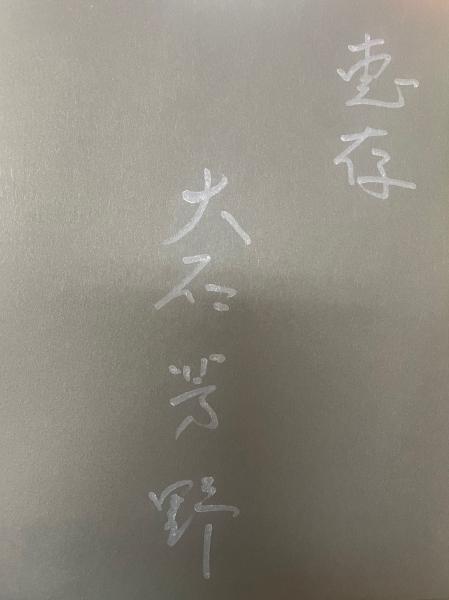 恵存
大石芳野